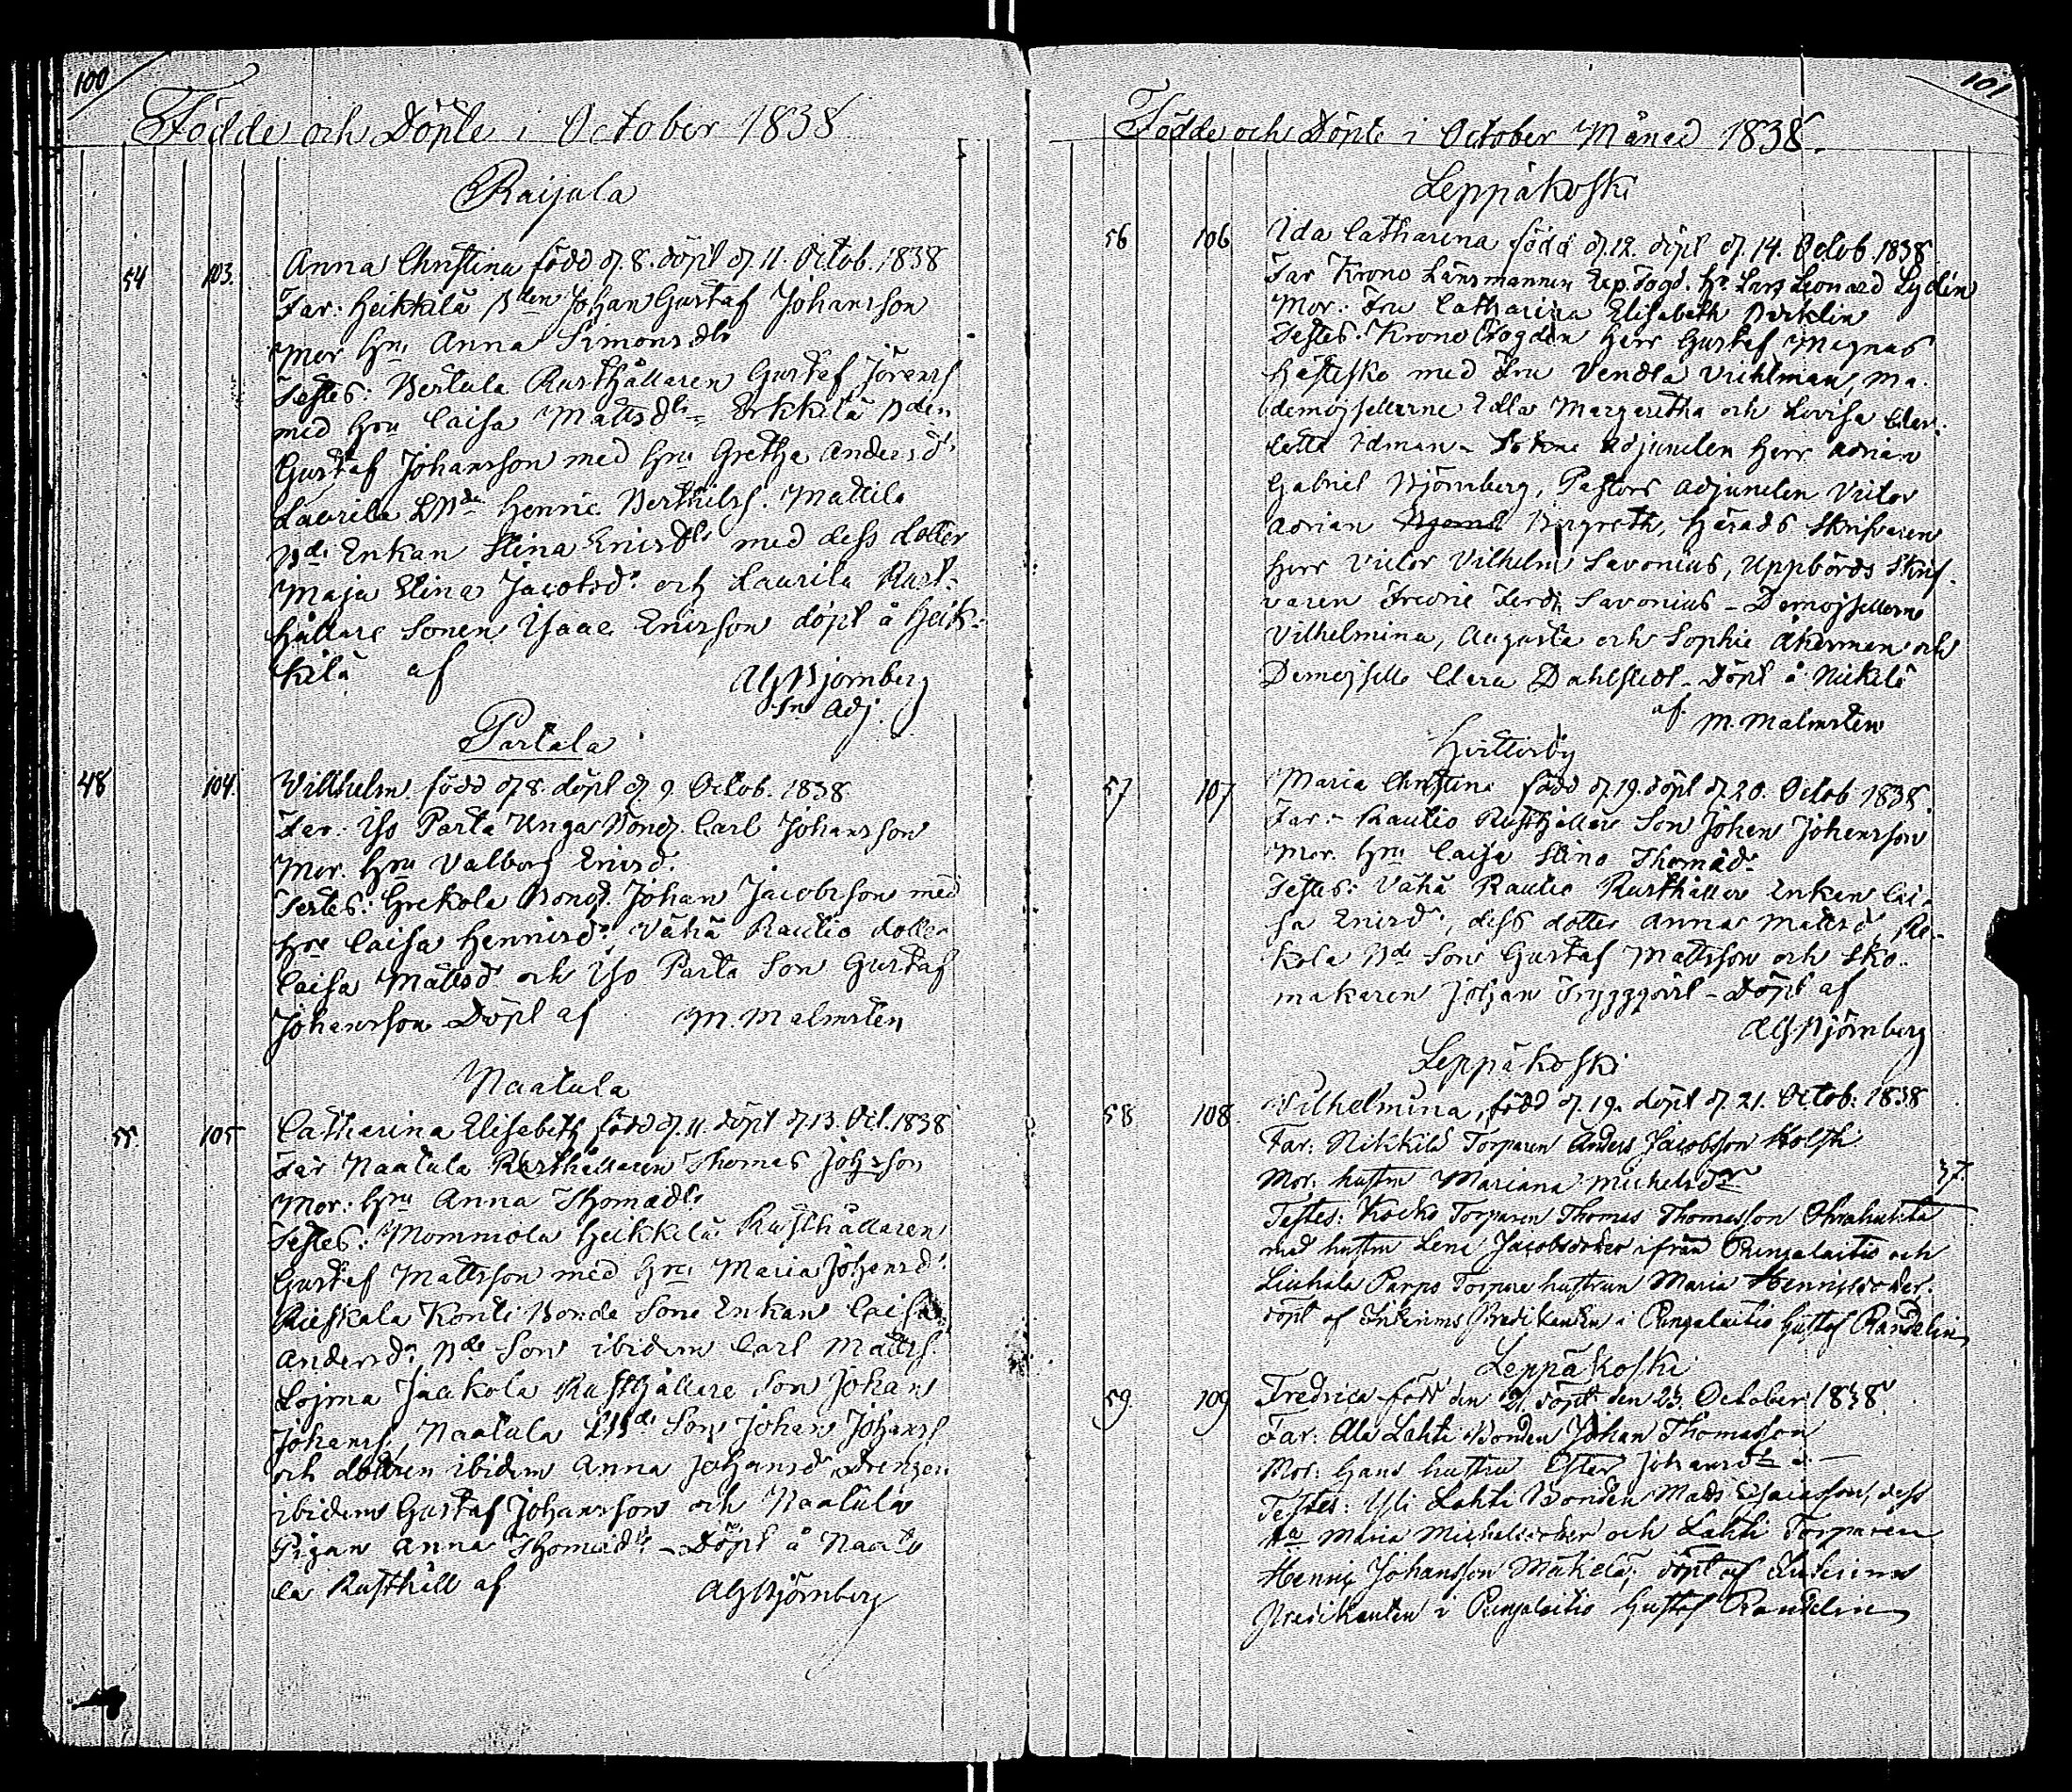 100
Födde och Döpte i October 1838
Raijala
54 103. Anna Christina född d. 8. döpt d. 11. Octob. 1838
Far: Heikkilä Bden Johan Gustaf Johansson
Mor Hru Anna Simonsdr
Testes: Bertula Rusthållaren Gustaf Jörenss
med Hru Caisa Mattsdr Erkkilä Bden
Gustaf Johansson med Hru Gretha Andersdr
Laurila Henric Berthilss. Mattila
Bde Enkan Stina Ericsdr med dess dotter
Maja Stina Jacobsdr och Laurila Rust-
hållare Sonen Isaac Ericsson döpt å Heik-
kilä af AGBjörnberg
Sn Adj.
Partala
48 104. Villhelm. född d 8. döpt d. 9 Octob. 1838
Far: Iso Parta Unga Bond. Carl Johansson
Mor. Hru Valborg Ericsd.
Testes: Grekola Bond. Johan Jacobsson med
Hru Caisa Henricsdr Vähä Rautio dotter
Caisa Mattsd och Iso Parta Son Gustaf
Johansson Döpt af M. Malmsten
Naatula
55. 105 Catharina Elisabeth född d. 11. döpt d. 13. Oct. 1838
Far Naatula Rusthållaren Thomas Johsson
Mor: Hru Anna Thomasdr
Testes: Mommola Heikkilä Rusthållaren
Gustaf Mattsson med Hru Maria Johansdr
Rieskala Konti Bonde Sone Enkan Caisa
Andersdr Bde Son ibidem Carl Mattss.
Lojma Jaakola Rusthållare Son Johan
Johanss, Naatula Son Johan Johanss
och dottren ibidem Anna Johansdr drengen
ibidem Gustaf Johansson och Naatula
Pigan Anna Thomasdr - Döpt å Naatu
la Rusthåll af AGBjörnberg
101
Födde och Döpte i October Månad 1838.
Leppäkoski
56 106 Ida Catharina född d. 12. döpt d. 14. Octob. 1838
Far Krono Länsmannen Exp. Fogd. Hr Lars Leonard Lydén
Mor: Fru Catharina Elisabeth
Testes: Krono Fogden Herr Gustaf Magnus
Hästesko med Fru Vendla Ma-
demoisellerne Edla Margaretha och Lovisa Char-
lotta Idman - Sokne Adjuncten Herr Adrian
Gabriel Björnberg, Pastors Adjuncten Victor
Adrian Bergroth, Härads Skrifvaren
Herr Victor Vilhelm Savonius, Uppbörds Skrif-
varen Fredric Ferd. Savonius - Demoisellerne
Vilhelmina, Augusta och Sophie Åkerman och
Demoiselle Clara Dahlstedt - Döpt å Nickilä
af M. Malmsten
Hvittisby
57 107 Maria Christina född d. 19. döpt d. 20. Octob 1838.
Far: - Rautio Rusthållare Son Johan Johansson
Mor. Hru Caisa Stina Thomasdr
Testes: Vähä Rautio Rusthållare Enkan Cai-
sa Ericsdr, dess dotter Anna Mattsd, Re-
kola Bde Son Gustaf Mattsson och Sko-
makaren Johan - Döpt af
AGBjörnberg
Leppäkoski
58 108. Vilhelmina, född d. 19. döpt d. 21. Octob: 1838
Far: Nikkilä Torparen Anders Jacobsson Kolski
Mor: hustru Mariana Michelsdr 37.
Testes: Kocko Torparen Thomas Thomasson
med hustru Lena Jacobsdoter ifrån Pungalaitio och
Liuhala Parpo Torpare hustrun Maria Henricsdoter.
döpt af Interims Predikanten i Pungalaitio Gustaf Randelin
Leppäkoski
59 109 Fredrica född den 21. döpt den 23. October 1838.
Far: Ala Lahti Bonden Johan Thomasson
Mor: Hans hustru Ester Johansdr
Testes: Yli Lahti Bonden Matts Isacsson, dess
Maria Michelsdoter och Lahti Torparen
Henric Johansson Mäkelä; döpt af Interims
Predikanten i Pungalaitio Gustaf Randelin